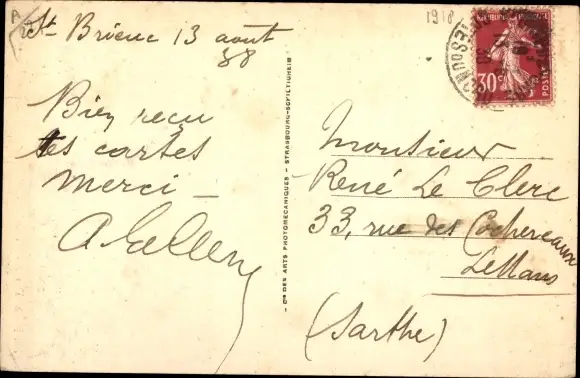 St Brieuc 13 août
38
Bien reçu
tes cartes
Merci -
1918
30c
POSTES
Cie DES ARTS PHOTOMECANIQUES - STRASBOURG-SCHILTIGHEIM
Monsieur
René Le Clerc
33, rue des Cochereaux
Le Mans
(Sarthe)